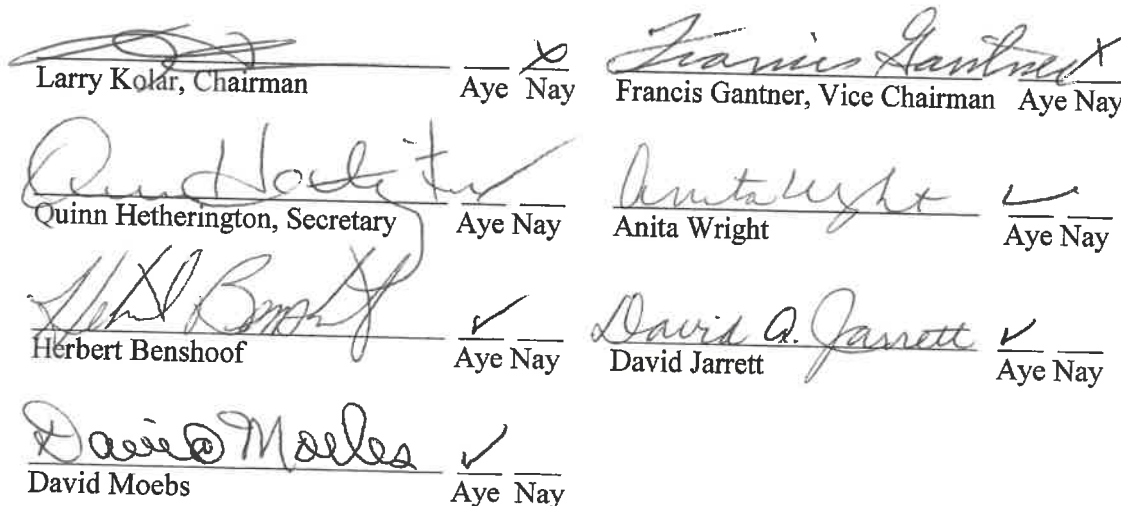 Larry Kolar, Chairman Aye Nay
Francis Gantner
Francis Gantner, Vice Chairman Aye Nay
Quinn Hetherington, Secretary Aye Nay
Anita Wright
Anita Wright Aye Nay
Herbert Benshoof Aye Nay
David A. Jarrett
David Jarrett Aye Nay
David Moebs
David Moebs Aye Nay